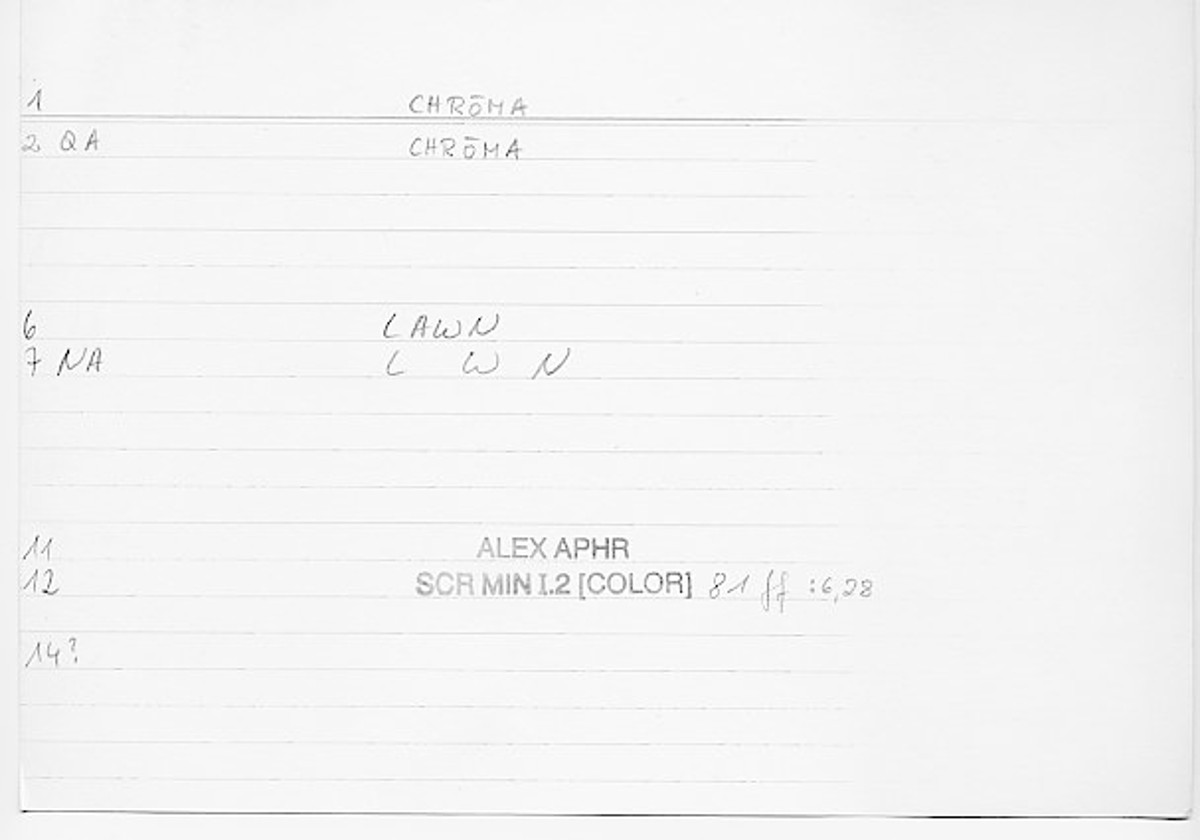 1 CHRōMA
2 QA CHRōMA
6 LAWN
7 NA L W N
11 ALEX APHR
12 SCR MIN I.2 [COLOR] 81 ff :6,28
14?